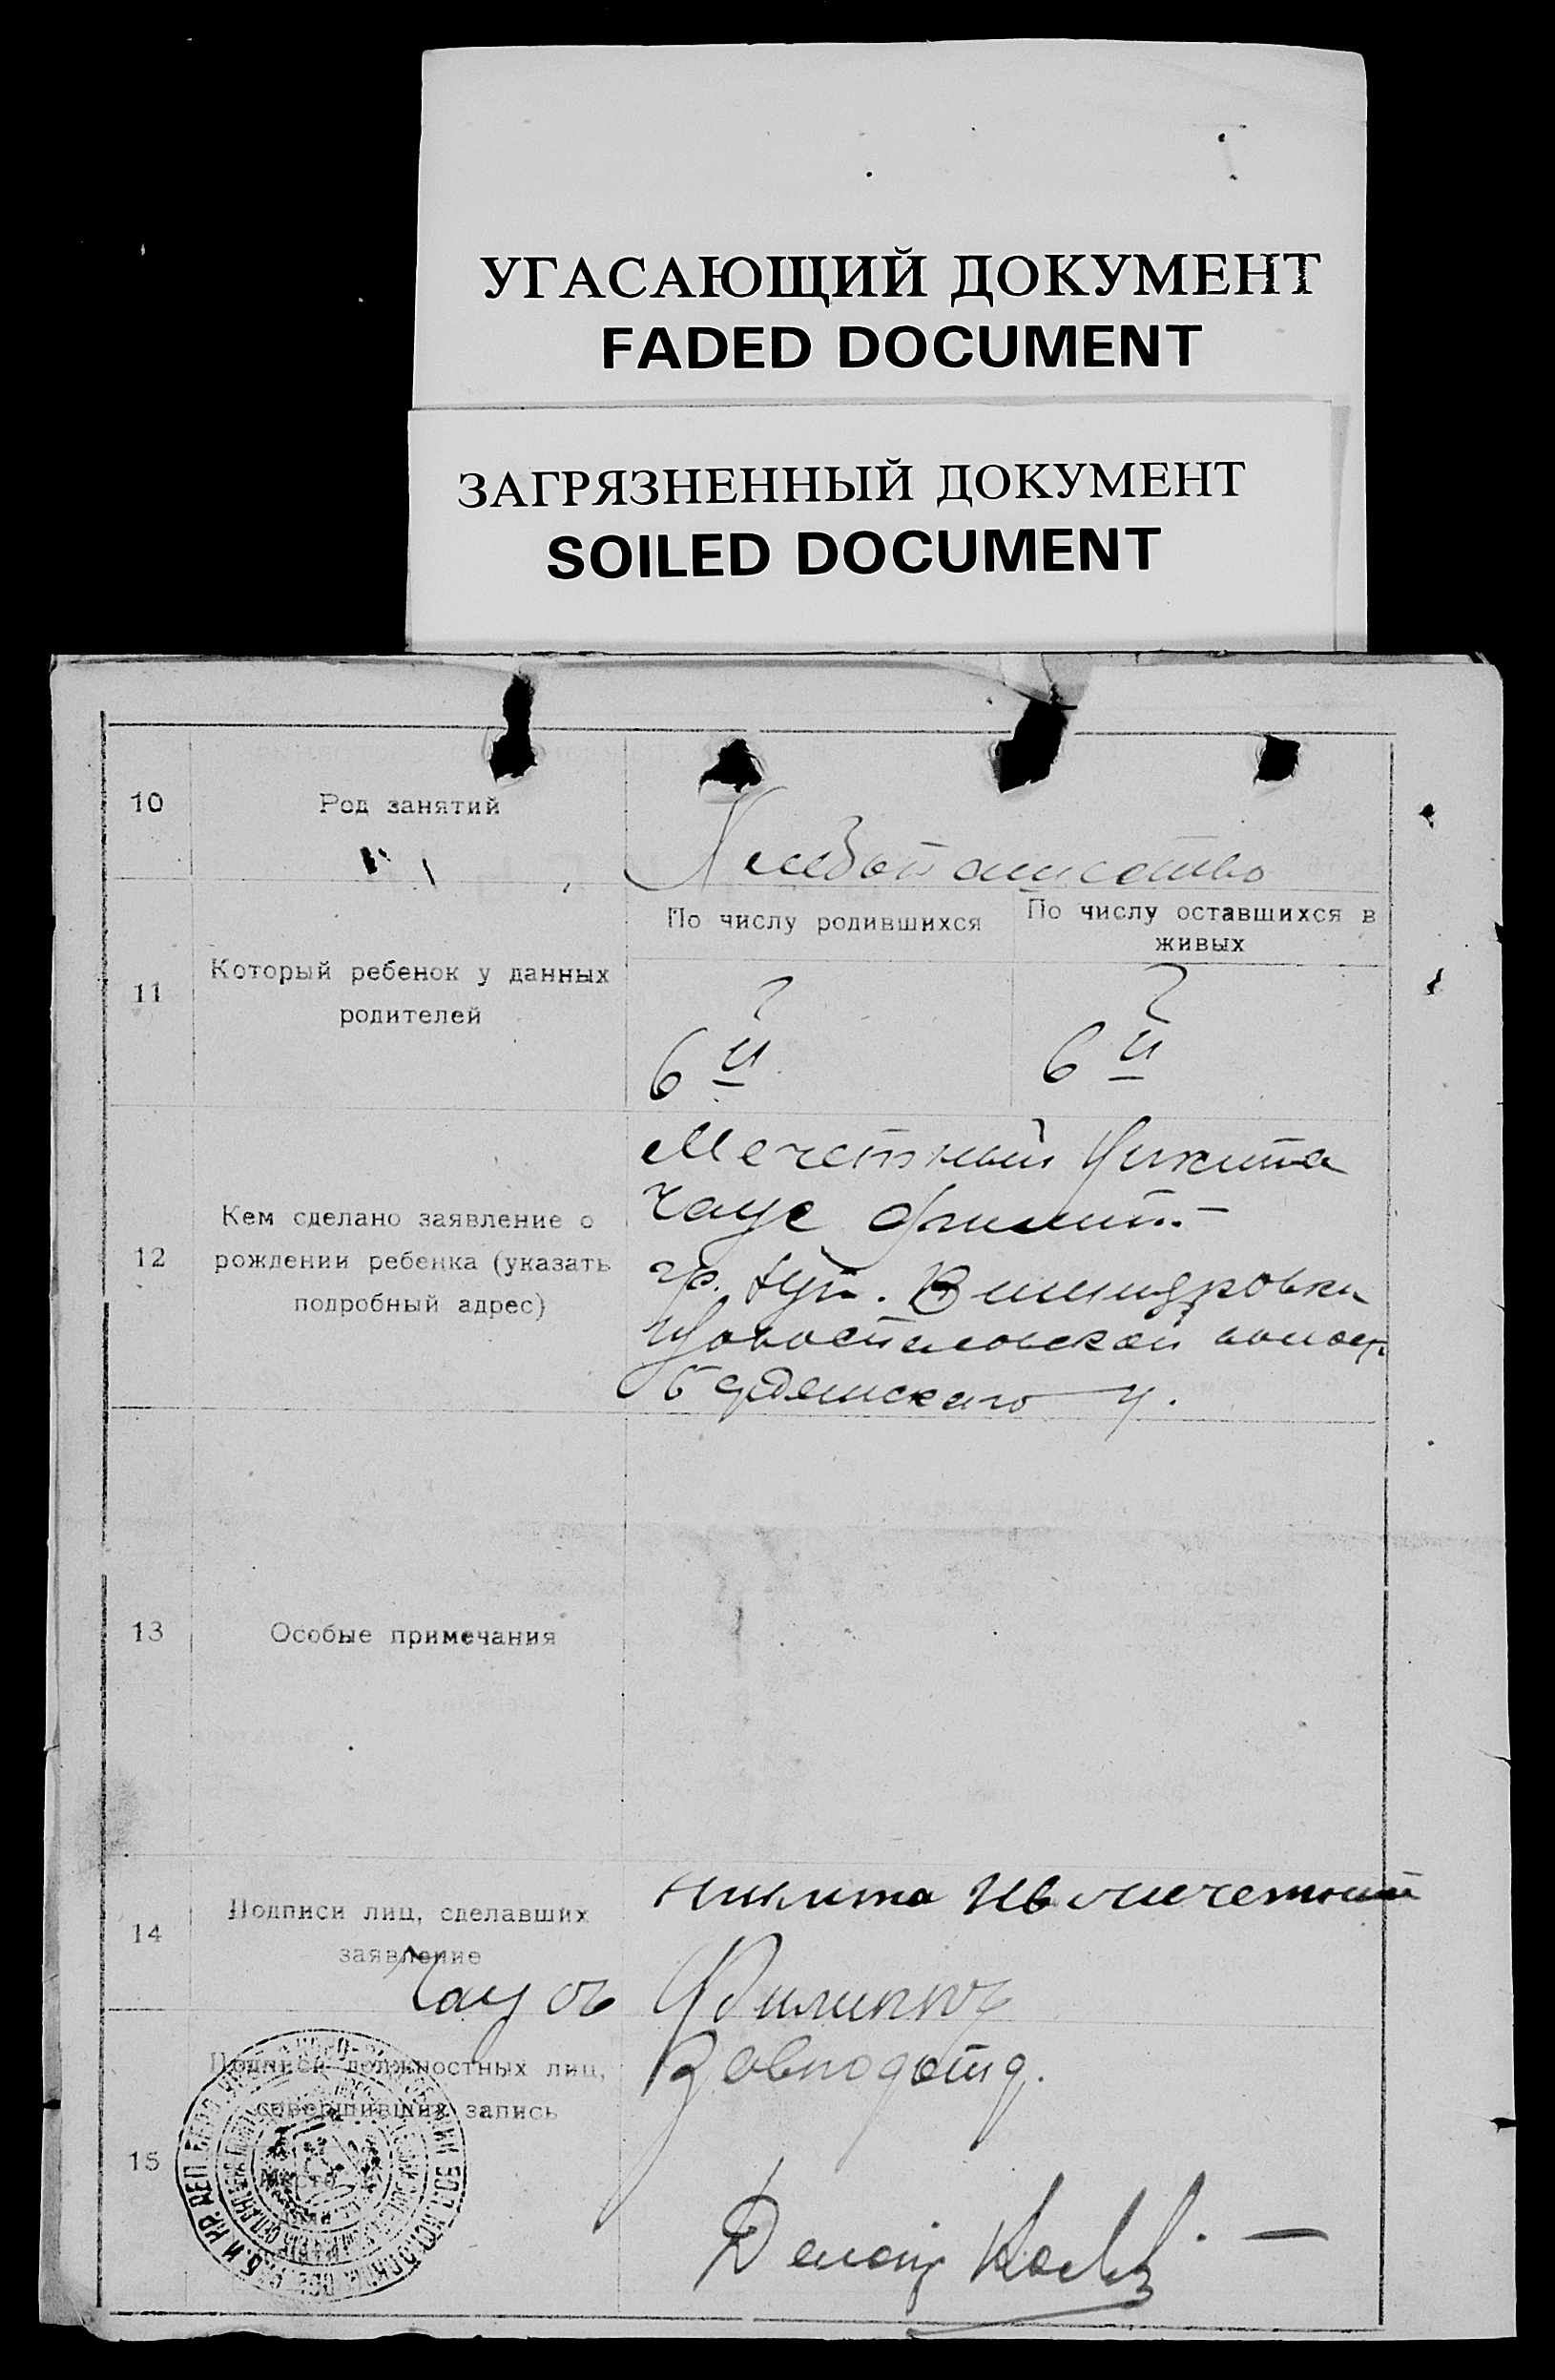 УГАСАЮЩИЙ ДОКУМЕНТ
FADED DOCUMENT
ЗАГРЯЗНЕННЫЙ ДОКУМЕНТ
SOILED DOCUMENT
10 Род занятий
Хлебопашество
11 Который ребенок у данных
родителей
По числу родившихся
6 й
По числу оставшихся в
живых
6 й
12 Кем сделано заявление о
рождении ребенка (указать
подробный адрес)
Мечетный Никита
Чаус Филип.
гр. хут.
волос.
у.
13 Особые примечания
14 Подписи лиц, сделавших
заявление
Никита Ив Мечетный
Чаусъ Филиппъ
15 Подписи должностных лиц,
совершивших запись
Место
Завподотд.